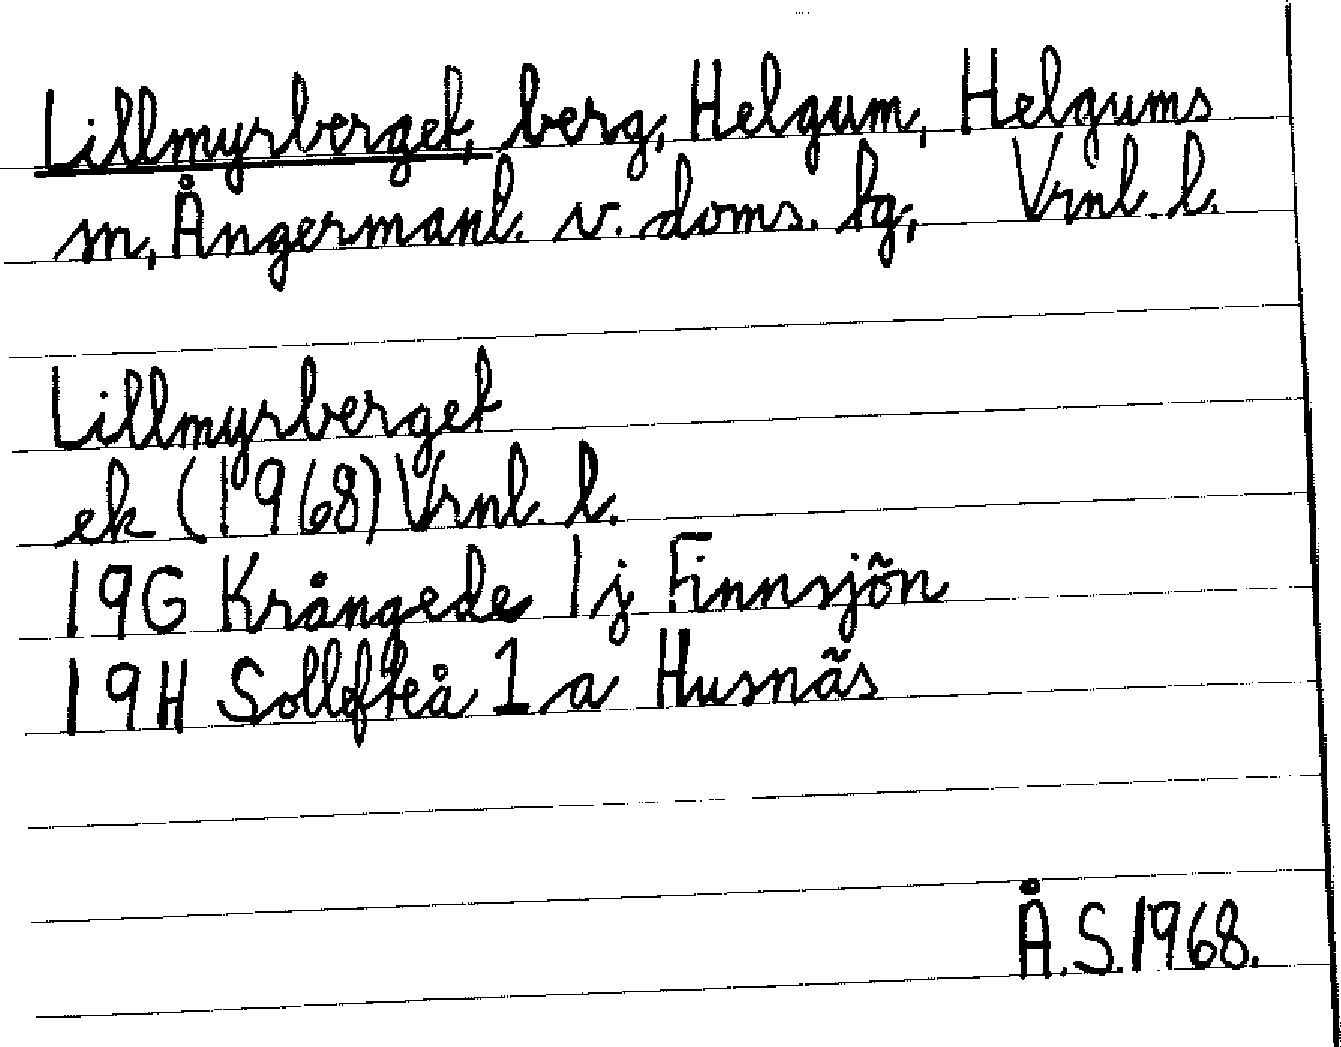 Lillmyrberget, berg, Helgum, Helgums
m, Ångermanl. v. doms. hg, Vrnl. l.
Lillmyrberget
ek (1968) Vrnl. l.
19G Krångede 1j Finnsjõn
19H Sollefteå 1 a Husnãs
Å.S.1968.